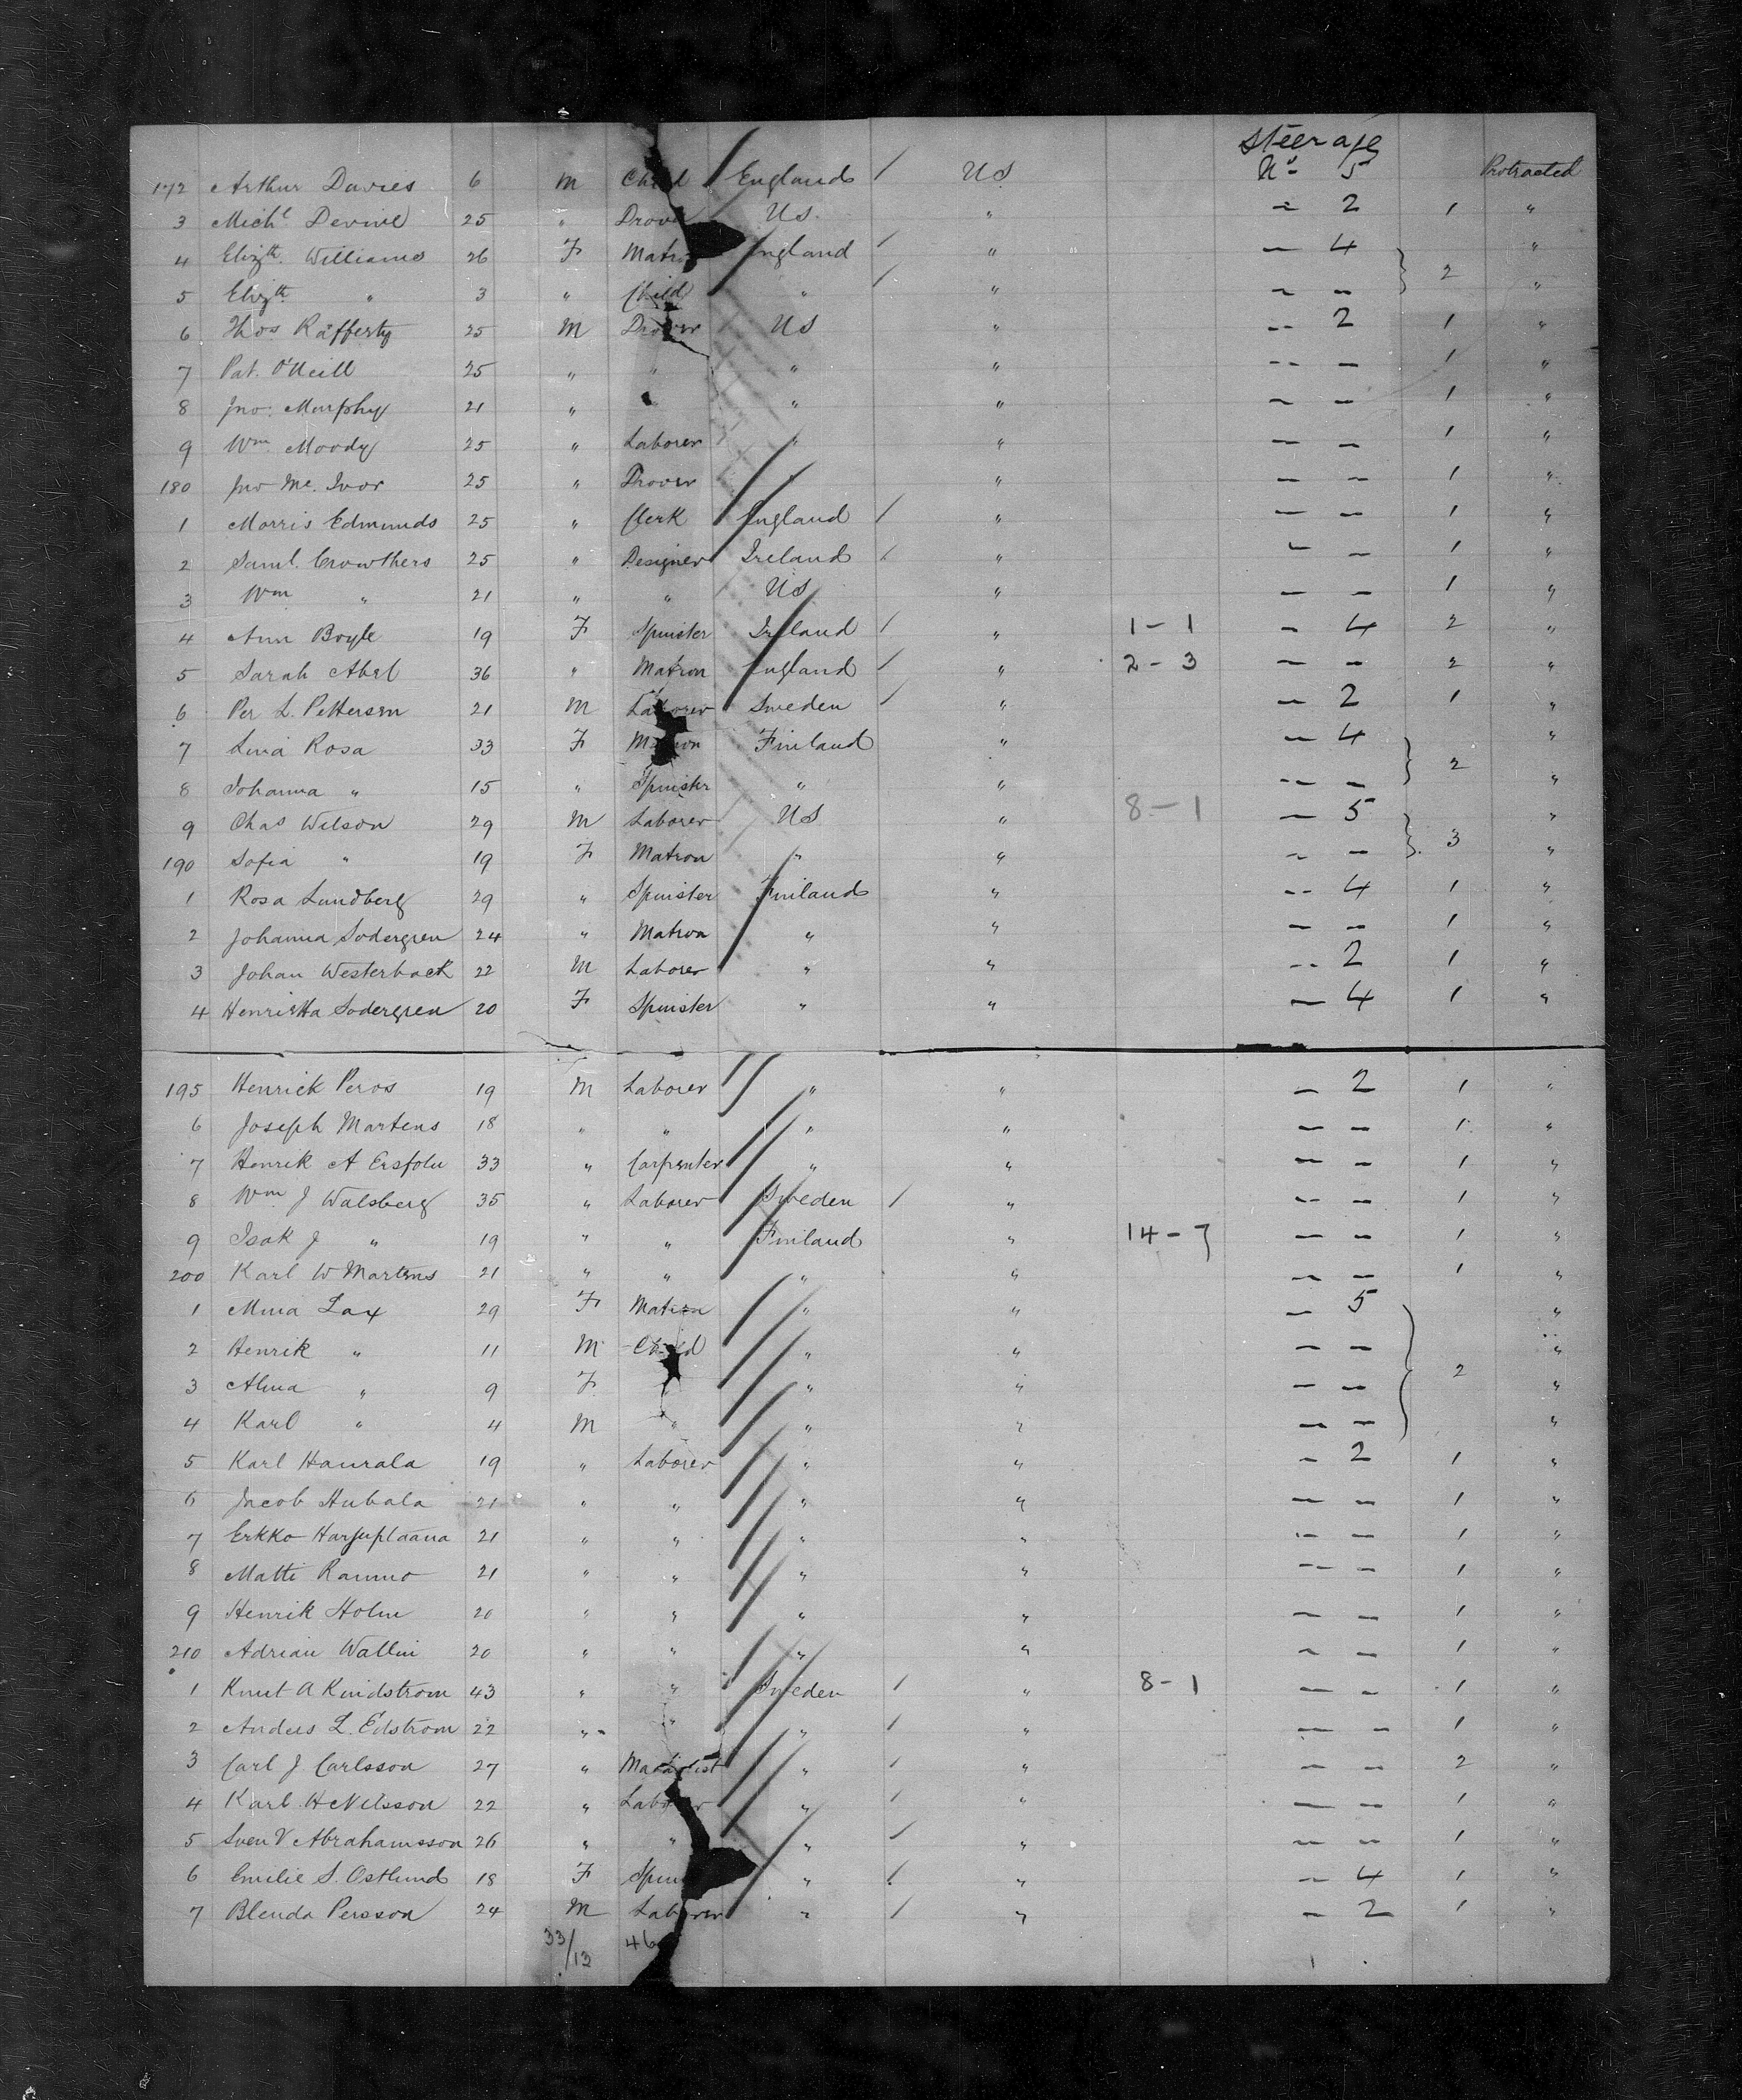 Steerage
172 Arthur Davies 6 M Child England / US No 5 Protracted
3 Michl Devine 25 " Drover US " - 2 1 "
4 Elizth. Williams 26 F Matron England / " - 4 } 2 "
5 Elizth. " 3 " Child " / " - - "
6 Thos Rafferty 25 M Drover US " - 2 1 "
7 Pat. O'Neill 25 " " " " - - 1 "
8 Jno. Murphy 21 " " " " - - 1 "
9 Wm. Moody 25 " Laborer " " - - 1 "
180 Jno Mc. Ivor 25 " Drover " " - - 1 "
1 Morris Edmunds 25 " Clerk England / " - - 1 "
2 Saml. Crowthers 25 " Designer Ireland / " - - 1 "
3 Wm " 21 " " US " - - 1 "
4 Ann Boyle 19 F Spinster Ireland / " 1-1 - 4 2 "
5 Sarah Abel 36 " Matron England / " 2-3 - - 2 "
6 Per L. Petterson 21 M Laborer Sweden / " - 2 1 "
7 Lina Rosa 33 F Matron Finland " - 4 } 2 "
8 Johanna " 15 " Spinster " " - - "
9 Chas Wilson 29 M Laborer US " 8-1 - 5 } 3 "
190 Sofia " 19 F Matron " " - - "
1 Rosa Lundberg 29 " Spinster Finland " - 4 1 "
2 Johanna Sodergren 24 " Matron " " - - 1 "
3 Johan Westerback 22 M Laborer " " - 2 1 "
4 Henrietta Sodergren 20 F Spinster " " - 4 1 "
195 Henrick Peros 19 M Laborer " " - 2 1 "
6 Joseph Martens 18 " " " " - - 1 "
7 Henrik A Ersfolu 33 " Carpenter " " - - 1 "
8 Wm J Walsberg 35 " Laborer Sweden / " - - 1 "
9 Isak J " 19 " " Finland " 14-7 - - 1 "
200 Karl W Martens 21 " " " " - - 1 "
1 Mina Lax 29 F Matron " " - 5 } 2 "
2 Henrik " 11 M Child " " - - "
3 Alma " 9 F " " - - "
4 Karl " 4 M " " " - - "
5 Karl Haurala 19 " Laborer " " - 2 1 "
6 Jacob Hubala 21 " " " " - - 1 "
7 Erkko Harjuplaana 21 " " " " - - 1 "
8 Matti Raumo 21 " " " " - - 1 "
9 Henrik Holm 20 " " " " - - 1 "
210 Adrian Wallin 20 " " " " - - 1 "
1 Knut A Kindstrom 43 " " Sweden / " 8-1 - - 1 "
2 Anders L. Edstrom 22 " " " / " - - 1 "
3 Carl J Carlsson 27 " " / " - - 2 "
4 Karl H Nilsson 22 " Laborer " / " - - 1 "
5 Sven V Abrahamsson 26 " " " / " - - 1 "
6 Emilie S. Ostlund 18 F Spin " / " - 4 1 "
7 Blenda Persson 24 M Laborer " / " - 2 1 "
33/13 46